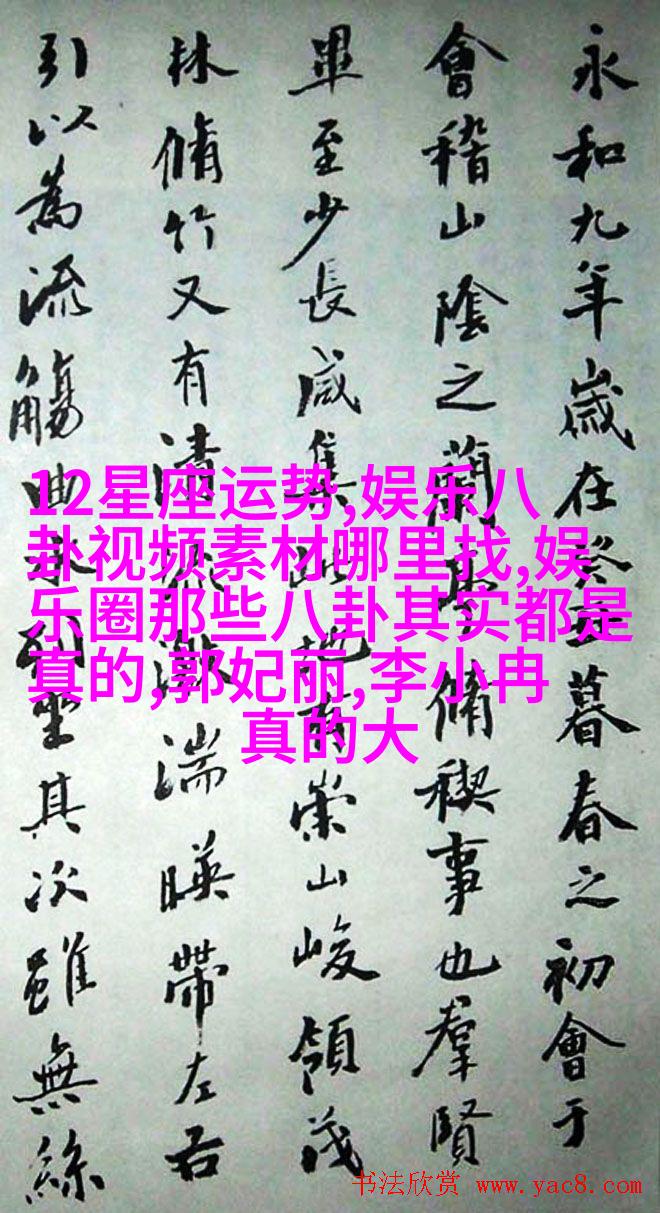 永和九年歲在癸丑暮春之初會于
會稽山陰之蘭亭脩稧事也羣賢
畢至少長咸集此地有崇山峻領茂
林脩竹又有清流激湍暎帶左右
引以為流觴曲水列坐其次雖無絲
12星座运势,娱乐八
卦视频素材哪里找,娱
乐圈那些八卦其实都是
真的,郭妃丽,李小冉
真的大
书法欣赏 www.yac8.com